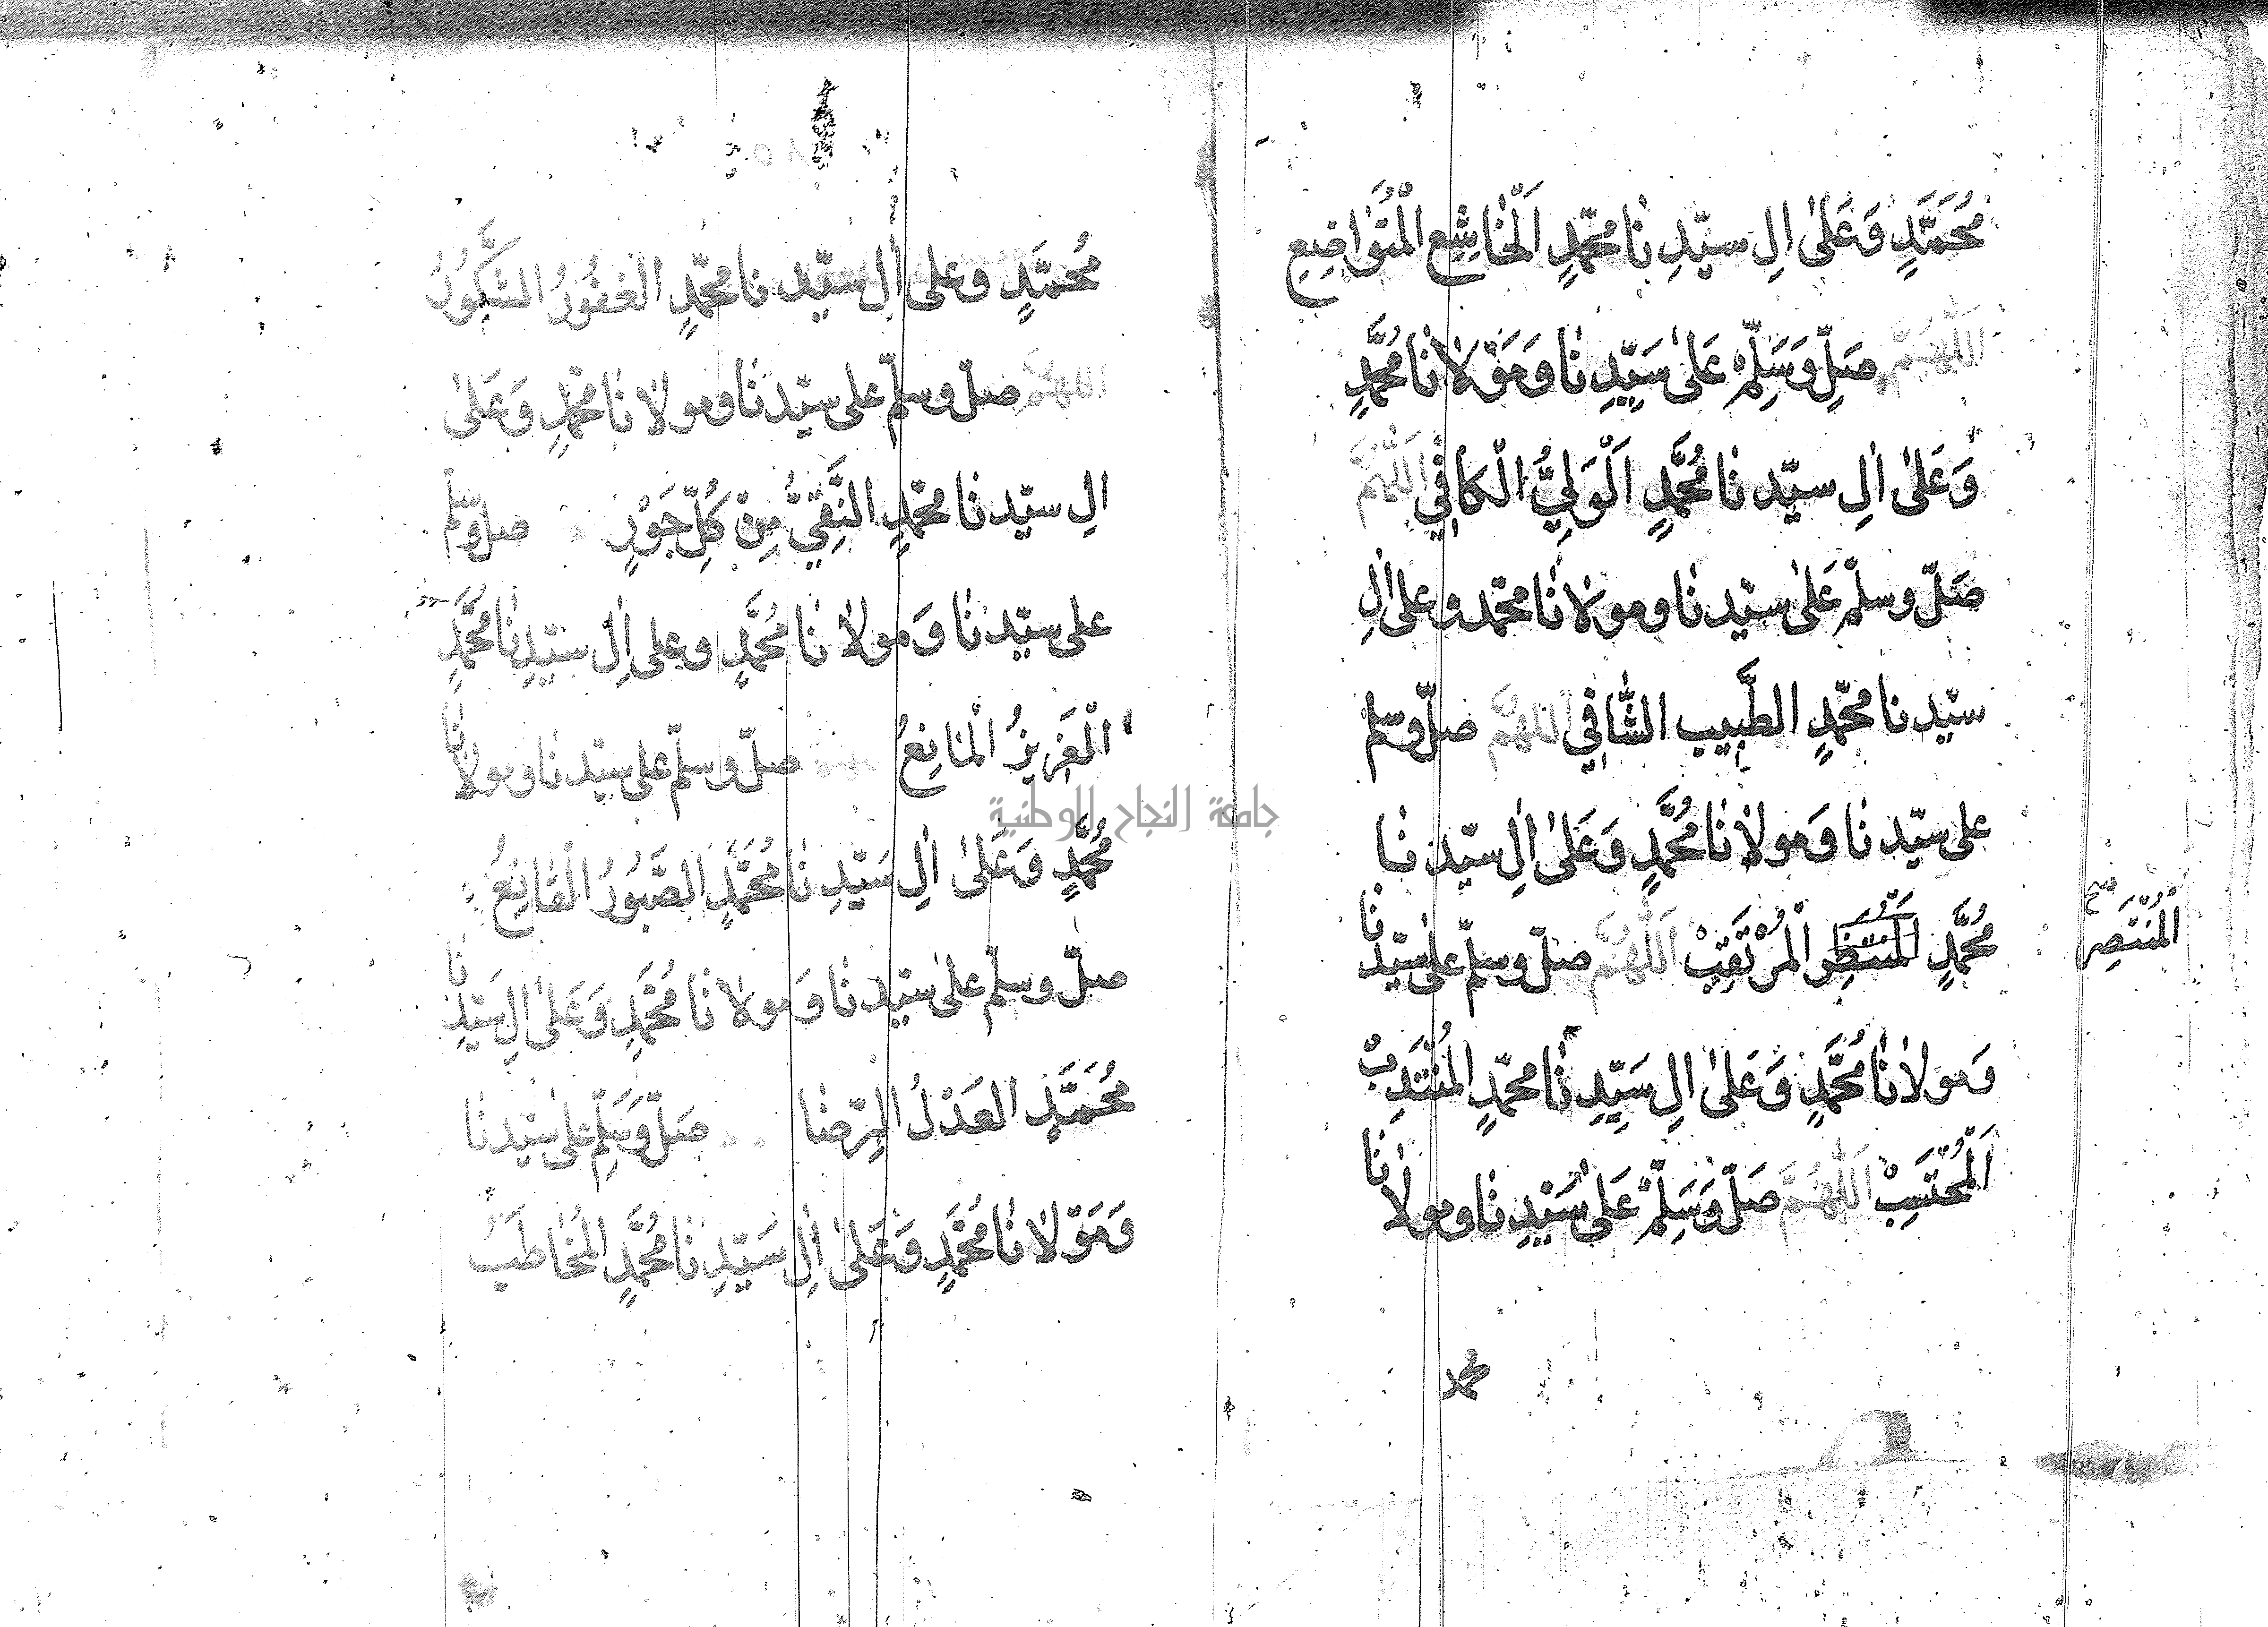 مُحَمَّدٍ وَعَلىٰ اٰلِ سيّدِنٰا محمّدٍ اَلْخٰاشِعِ الْمُتَوٰاضِعِ
اَللّٰهُمَّ صَلِّ وَسَلِّمْ عَلىٰ سَيِّدِنٰا وَمَوْلٰانٰا مُحَمَّدٍ
وَعَلىٰ اٰلِ سيّدنٰا مُحَمَّدٍ اَلْوَلِيُّ الْكٰافِي اَللّٰهُمَّ
صَلّ وسلّمْ عَلىٰ سيّدنٰا ومولٰانٰا محمّد وعلى اٰلِ
سيّدنا محمّدٍ الطَّبِيب الشّٰافِي اللهُمَّ صلّ وسلم
على سيّدنٰا وَمولٰانٰا مُحَمَّدٍ وَعَلىٰ اٰلِ سيّدنٰا
مُحَمَّدٍ المنتظِر الْمُرْتَقِبْ اَللّٰهُمَّ صلّ وسلّم على سيّدنٰا
الْمُنْتَصِر صح
وَمولٰانٰا مُحَمَّدٍ وَعَلىٰ اٰلِ سَيِّدِنٰا محمّدٍ الْمُنْتَدِبْ
اَلْمُحْتَسِبْ اَللّٰهُمَّ صَلّ وَسَلِّمْ عَلىٰ سَيّدِنٰا ومولٰانٰا
محمد
مُحمَّدٍ وعلى اٰل سيّدنا محمّدٍ الغفُورُ الشَّكُورُ
اللهُمَّ صلّ وسلّم على سيّدنٰا ومولٰانٰا محمّدٍ وَعَلىٰ
اٰلِ سيّدنٰا محمّدٍ النَّقِيُّ مِنْ كُلِّ جَوْرٍ صلّ وسلّم
على سيّدنٰا وَمولٰانٰا مُحَمَّدٍ وعلى اٰلِ سيّدِنٰا مُحَمَّدٍ
الْعَزِيزُ الْمٰانِعُ صلّ وسلّم على سيّدنٰا ومولٰانٰا
مُحَمَّدٍ وَعَلىٰ اٰلِ سَيّدِنٰا مُحَمَّدٍ الصَّبُورُ الْقٰانِعُ
صلّ وسلّم علىٰ سيّدنٰا وَمولٰانٰا مُحَمَّدٍ وَعَلىٰ اٰلِ سَيّدِنٰا
مُحَمَّدٍ العَدْلُ الرِّضٰا صَلّ وَسَلِّم علىٰ سيّدنٰا
وَمَوْلٰانٰا مُحَمَّدٍ وَعَلىٰ اٰلِ سَيّدِنٰا مُحَمَّدٍ الْمُخٰاطَبُ
جامعة النجاح الوطنية